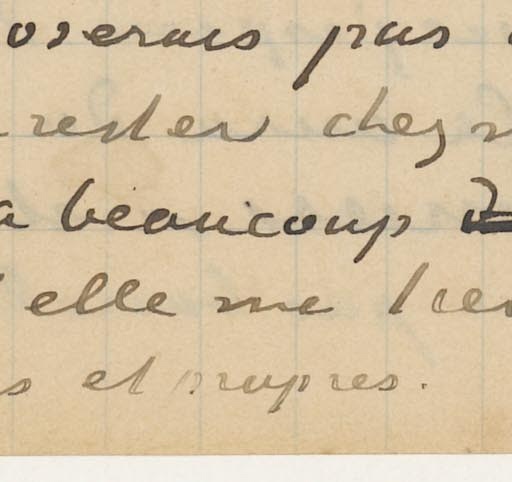 oserais pas
rester chez
a beaucoup
elle me
s et propres.